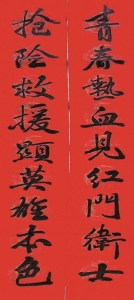 青春熱血見紅門衛士
搶險救援顯英雄本色